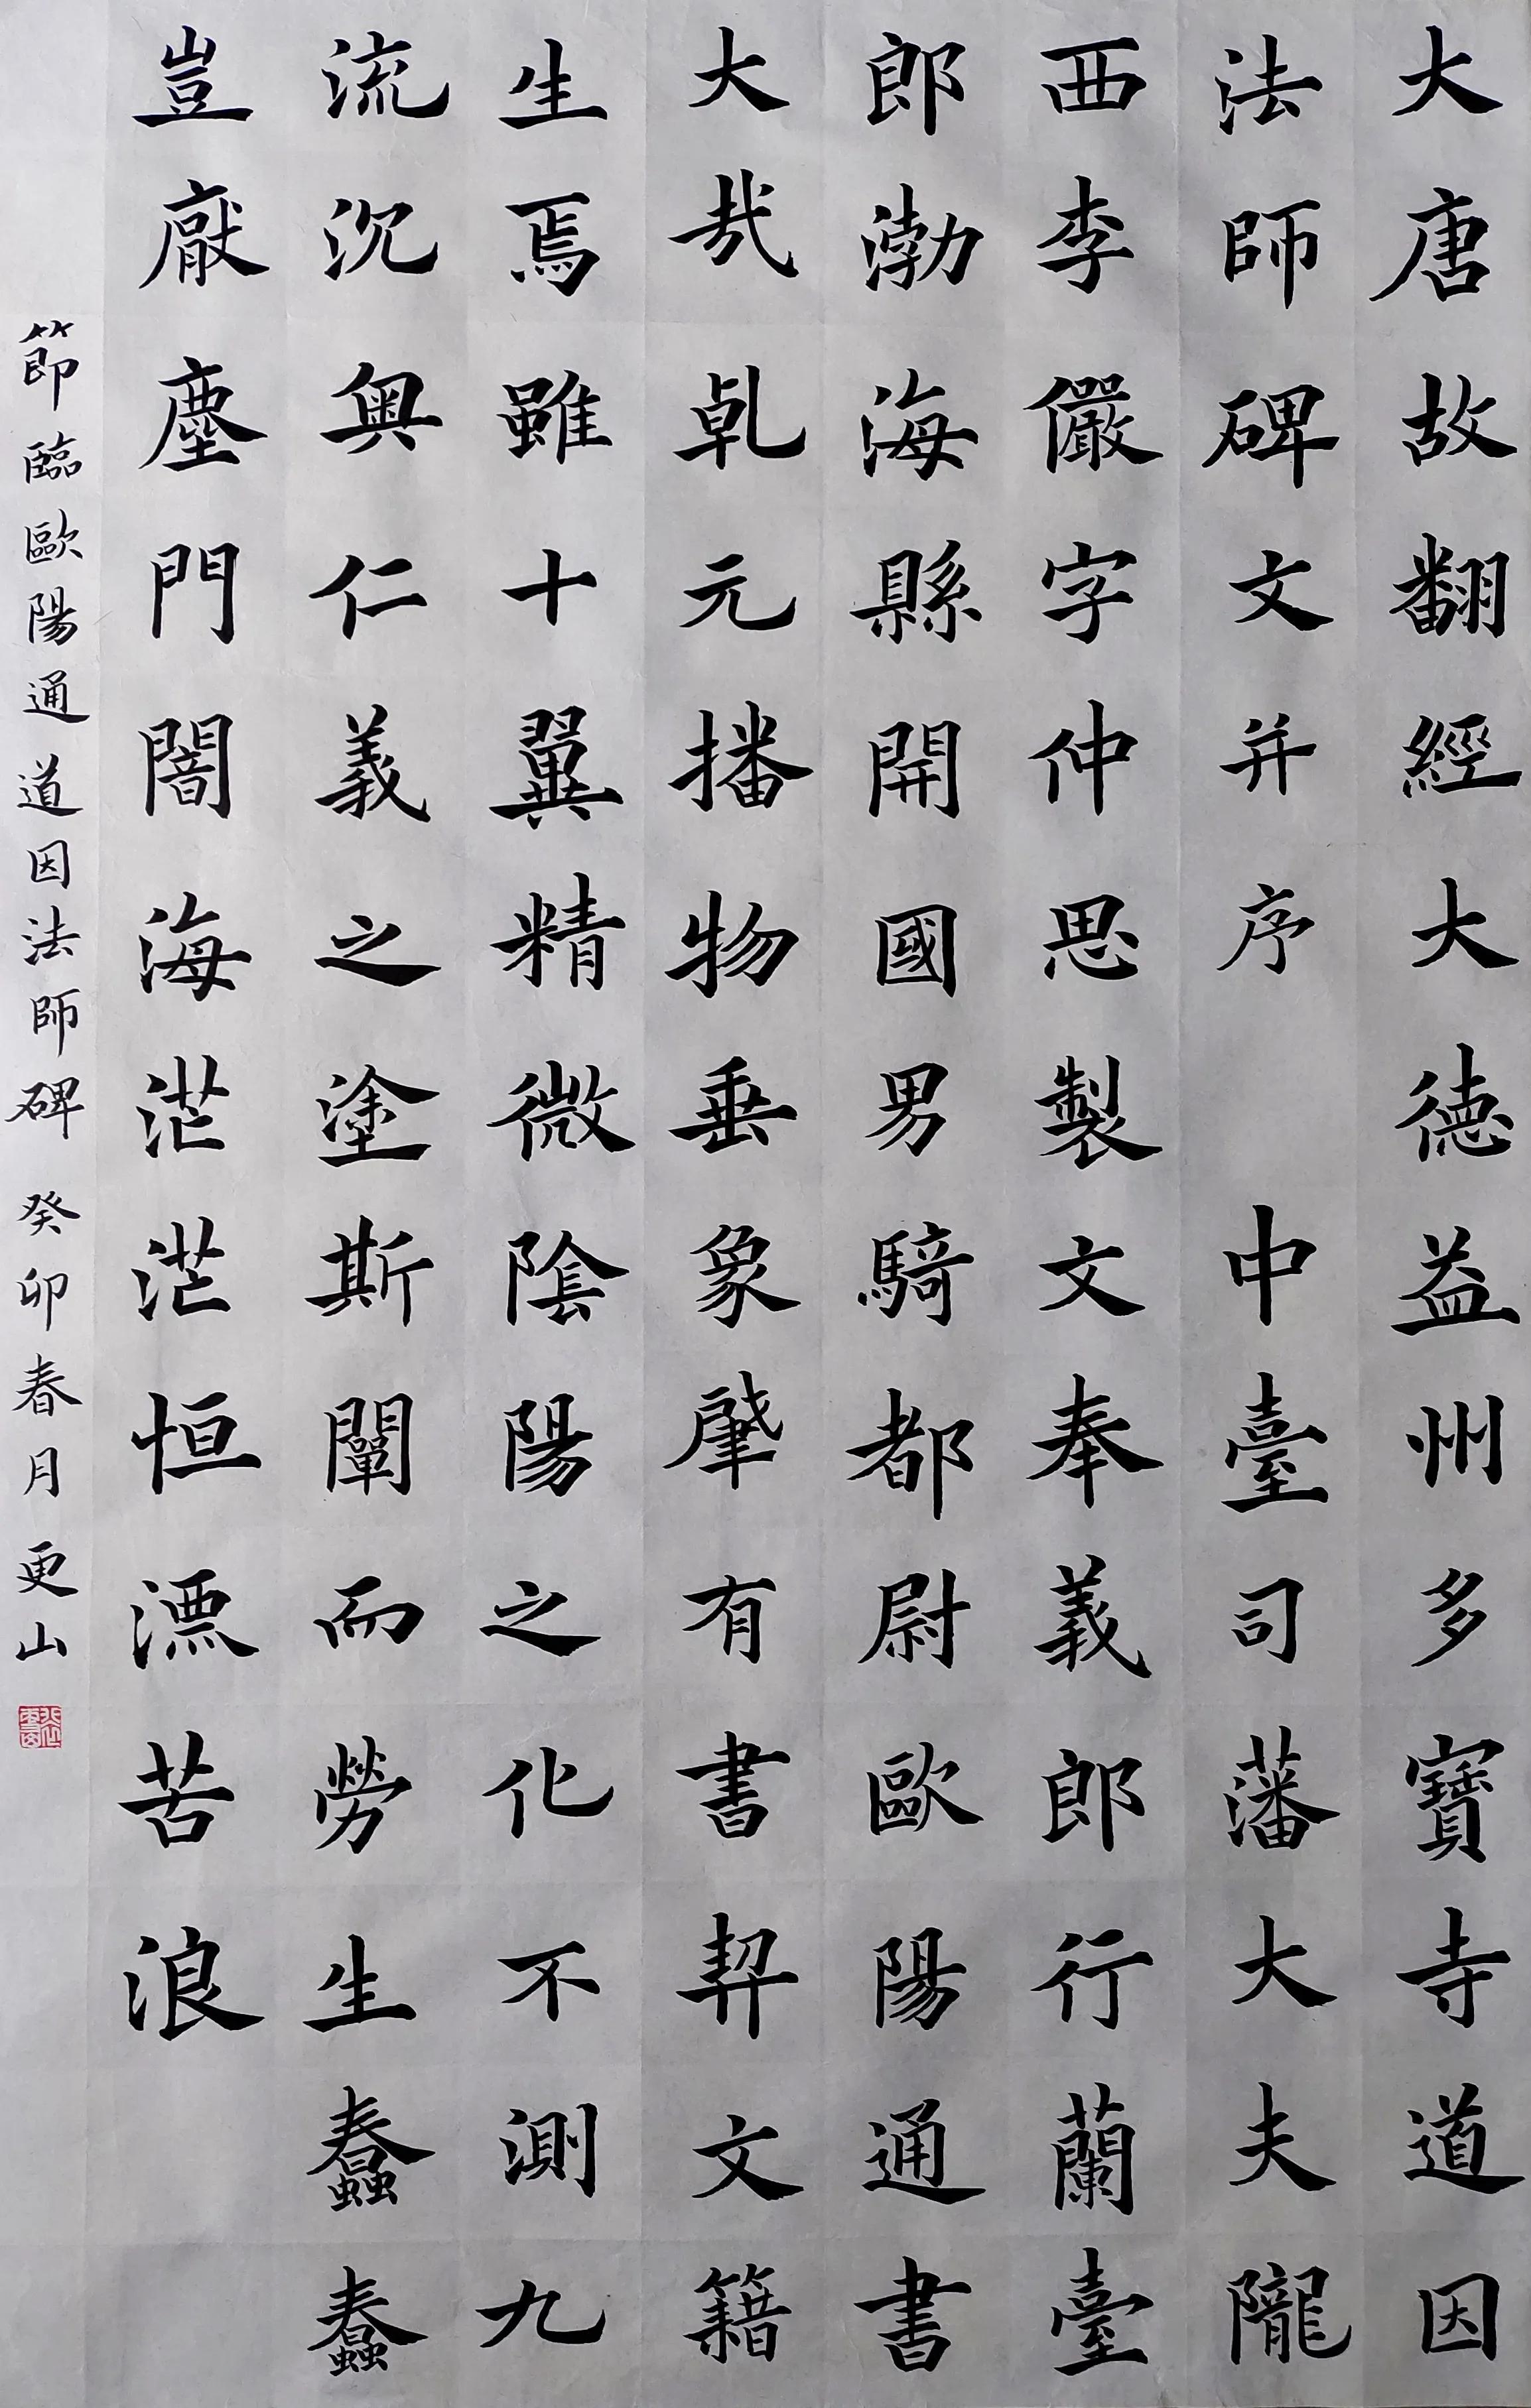 大唐故翻經大德益州多寶寺道因
法師碑文并序 中臺司藩大夫隴
西李儼字仲思製文奉義郎行蘭臺
郎渤海縣開國男騎都尉歐陽通書
大哉乹元播物垂象肇有書契文籍
生焉雖十翼精微陰陽之化不測九
流沉奧仁義之塗斯闡而勞生蠢蠢
豈厭塵門闇海茫茫恒漂苦浪
節臨歐陽通道因法師碑 癸卯春月更山